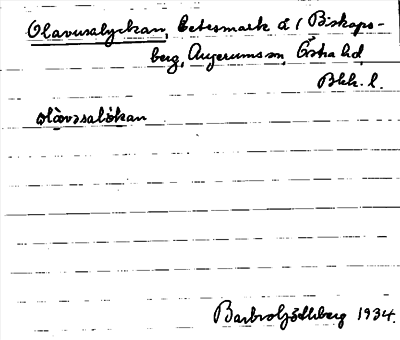 Olavusalyckan, Betesmark å 1 Biskops-
berg, Augerums sn, Östra hd
Blek. l.
olàvɘsalökan
Barbro Göthberg 1934.